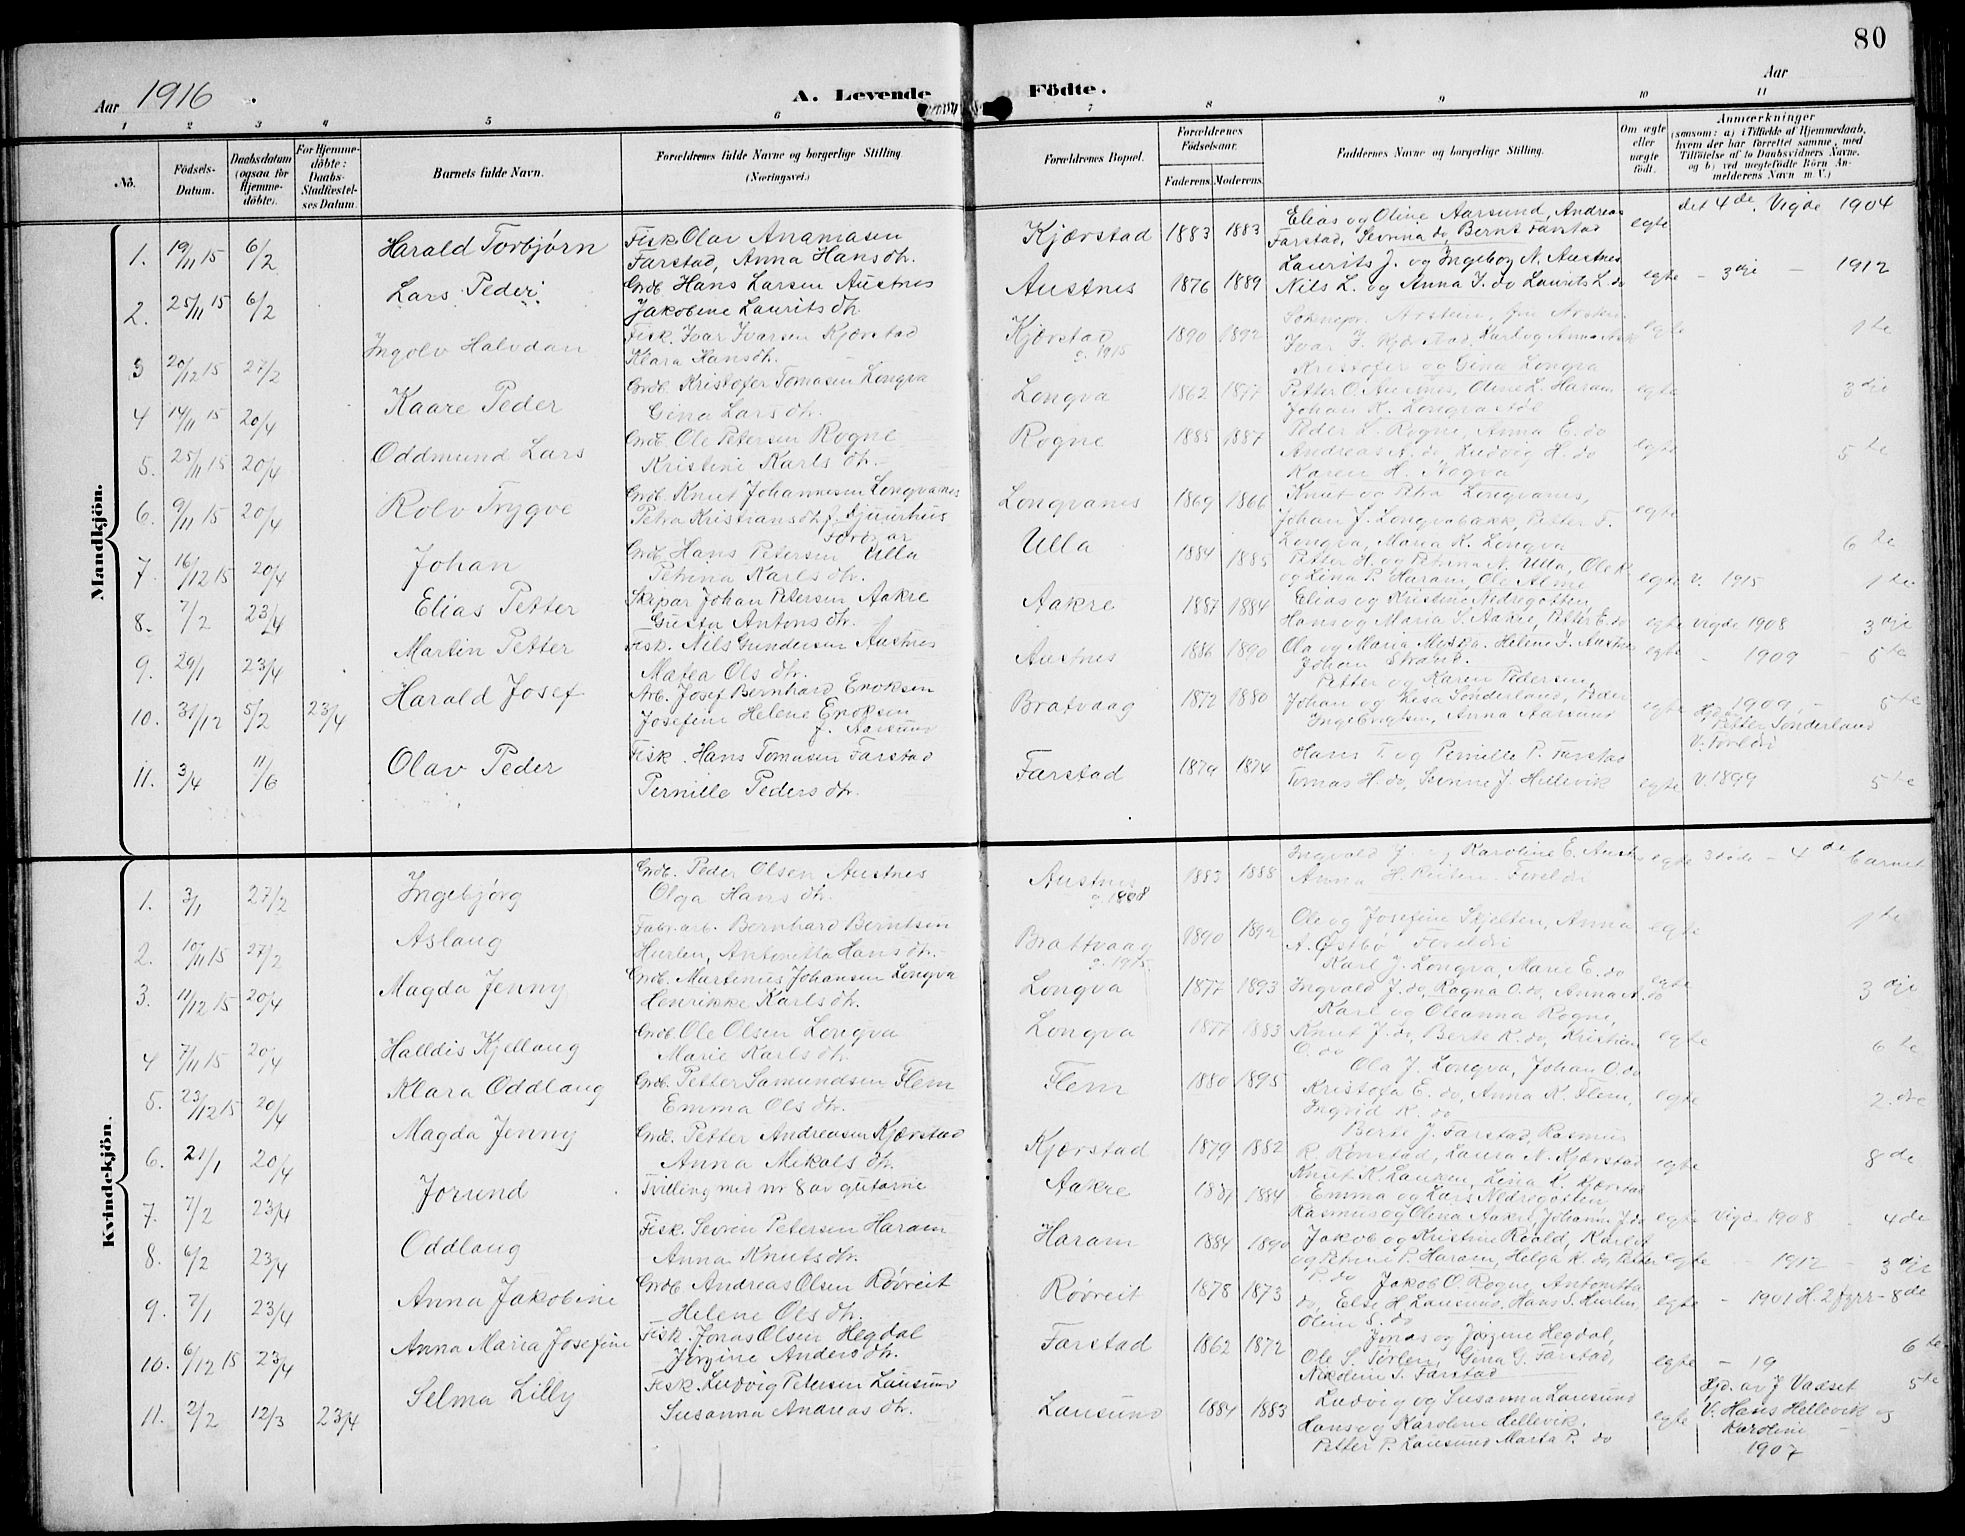 80
Aar 1916
A. Levende Födte.
Aar
1 2 3 4 5 6 7 8 9 10 11
No.
Födsels-Datum.
Daabsdatum (ogsaa for Hjemmedöbte).
For Hjemmedöbte: Daabs-Stadfæstelses Datum.
Barnets fulde Navn.
Forældrenes fulde Navne og borgerlige Stilling (Næringsvei.)
Forældrenes Bopæl.
Forældrenes Födselsaar.
Faderens. Moderens.
Faddernes Navne og borgerlige Stilling.
Om ægte eller uægte födt.
Anmærkninger
(saasom: a) i Tilfælde af Hjemmedaab, hvem der har forrettet samme, med Tilföielse af to Daabsvidners Navne, og b) ved uægtefödte Börn Anmelderens Navn m. V.)
Mandkjön.
1. 19/11 15 6/2 Harald Torbjørn Fisk Olav Ananiasen Farstad, Anna Hansdtr. Kjærstad 1883 1883 Elias og Oline Aarsund, Andreas Farstad, Severina do, Bernt Farstad egte det 4de. Vigde 1904
2. 25/11 15 6/2 Lars Peder Grdb. Hans Larsen Austnes Jakobine Lauritsdtr. Austnes 1876 1889 Laurits J. og Ingeborg N. Austnes Nils L. og Anna J. do Laurits L. do egte - 3dje - 1912
3 20/12 15 27/2 Ingolv Halvdan Fisk. Ivar Ivarsen Kjærstad Klara Hansdtr. Kjærstad g. 1915 1890 1892 Ivar J. Kjærstad, Karl og Anna egte 1te
4 14/11 15 20/4 Kaare Peder Grdb. Kristofer Tomasen Longva Gina Larsdtr. Longva 1862 1877 Kristofer og Gina Longva Petter O. Austnes, Oline L. Haram Johan K. Longvastøl egte 3dje
5. 25/11 15 20/4 Oddmund Lars Grdb. Ole Petersen Rogne Kristine Karlsdtr. Rogne 1885 1887 Peder L. Rogne, Anna E. do Andreas A. do, Ludvig H. do Karen H. Nogva egte 5te
6. 9/11 15 20/4 Rolv Trygve Grdb. Knut Johannesen Longvanes Petra Kristiansdtr. Longvanes 1869 1866 Knut og Petra Longvanes, Johan J. Longvabakk, Petter T. Longva, Maria K. Longva egte 6te
7. 16/12 15 20/4 Johan Grdb. Hans Petersen Ulla Petrina Karlsdtr. Ulla 1884 1885 Petter H. og Petrina N. Ulla, Ole K. og Lina P. Haram, Ole Alme egte V. 1915 1te
8. 7/2 23/4 Elias Petter Skipar Johan Petersen Aakre Gusta Antonsdtr. Aakre 1887 1884 Elias og Kristine Nedregotten, Hans og Maria S. Aakre, Petter E. do egte vigde 1908 3dje
9. 29/1 23/4 Martin Petter Fisk. Nils Gundersen Austnes Matea Olsdtr. Austnes 1886 1890 Ola og Maria Helene J. Austnes Johan egte - 1909 - 5te
10. 31/12 5/2 23/4 Harald Josef Arb. Josef Bernhard Eriksen Josefine Helene Eriksen f. Aarsund Bratvaag 1872 1880 Petter og Karen Pedersen, Johan og Lisa Sønderland, Peder Ingebrigtsen, Anna Aarsund egte 1909. - 5te Petter Sønderland
11. 3/4 11/6 Olav Peder Fisk. Hans Tomasen Farstad Pernille Pedersdtr. Farstad 1879 1874 Hans T. og Pernille P. Farstad Tomas H. do, J. Hellevik egte V. 1899 5te
Kvindekjön.
1. 3/1 27/2 Ingebjørg Grdb. Peder Olsen Austnes Olga Hansdtr. Austnes g. 1908 1883 1888 Ingvald J. og Karoline E. Austnes Anna H. egte 3 døde - 4de barnet
2. 10/11 15 27/2 Aslaug Fabr.arb. Bernhard Berntsen Hurlen, Antonetta Hansdtr. Brattvaag g. 1915 1890 1892 Ole og Josefine Skjelten, Anna A. Østbø egte 1te
3. 11/12 15 20/4 Magda Jenny Grdb. Martinus Johansen Longva Henrikke Karlsdtr. Longva 1877 1893 Karl J. Longva, Marie E. do Ingvald J. do, Ragna O. do, Anna A. do egte 3dje
4 7/11 15 20/4 Halldis Kjellaug Grdb. Ole Olsen Longva Marie Karlsdtr. Longva 1877 1883 Karl og Oleanna Rogne, Knut J. do, Berte K. do, Kristian O. do egte 6te
5. 23/12 15 20/4 Klara Oddlaug Grdb. Petter Samundsen Flem Emma Olsdtr. Flem 1880 1895 Ola J. Longva, Johan O. do Kristofa E. do, Anna K. Flem, Ingrid K. do egte 2.dre
6. 21/1 20/4 Magda Jenny Grdb. Petter Andreasen Kjærstad Anna Mikalsdtr. Kjærstad 1879 1882 Berte J. Farstad, Rasmus R. Rønstad, Laura N. Kjærstad Knut K. Lausen, Lina K. Kjærstad egte 8de
7. 7/2 23/4 Jorund Tvilling med nr 8 av gutarne Aakre 1887 1884 Emma og Lars Nedregotten, Rasmus og Olena Aakre, Johanne J. do egte Vigd. 1908 - 4de
8. 6/2 23/4 Oddlaug Fisk. Severin Petersen Haram Anna Knutsdtr. Haram 1884 1890 Jakob og Kristine Roald, Karl og Petrine P. Haram, Helga K. do, Petter P. do egte - 1912 - 3dje
9. 7/1 23/4 Anna Jakobine Grdb. Andreas Olsen Røvreit Helene Olsdtr. Røvreit 1878 1873 Jakob O. Rogne, Antonetta do, Else H. Lausund, Hans S. Hurlen, Oline S. do egte - 1901 H. 2 - 8de
10. 6/12 15 23/4 Anna Maria Josefine Fisk. Jonas Olsen Hegdal Jørgine Andersdtr. Farstad 1862 1872 Jonas og Jørgine Hegdal, Ole S. Tørlen, Gina G. Farstad, Nikoline S. Farstad egte - 19 6te
11. 2/2 12/3 23/4 Selma Lilly Fisk. Ludvig Petersen Lausund Susanna Andreasdtr. Lausund 1884 1883 Ludvig og Susanna Lausund Hans og Karoline Hellevik. Petter P. Lausund Marta P. do egte Hjd. av J. Vadset 5te V. Hans Hellevik og Karoline 1907